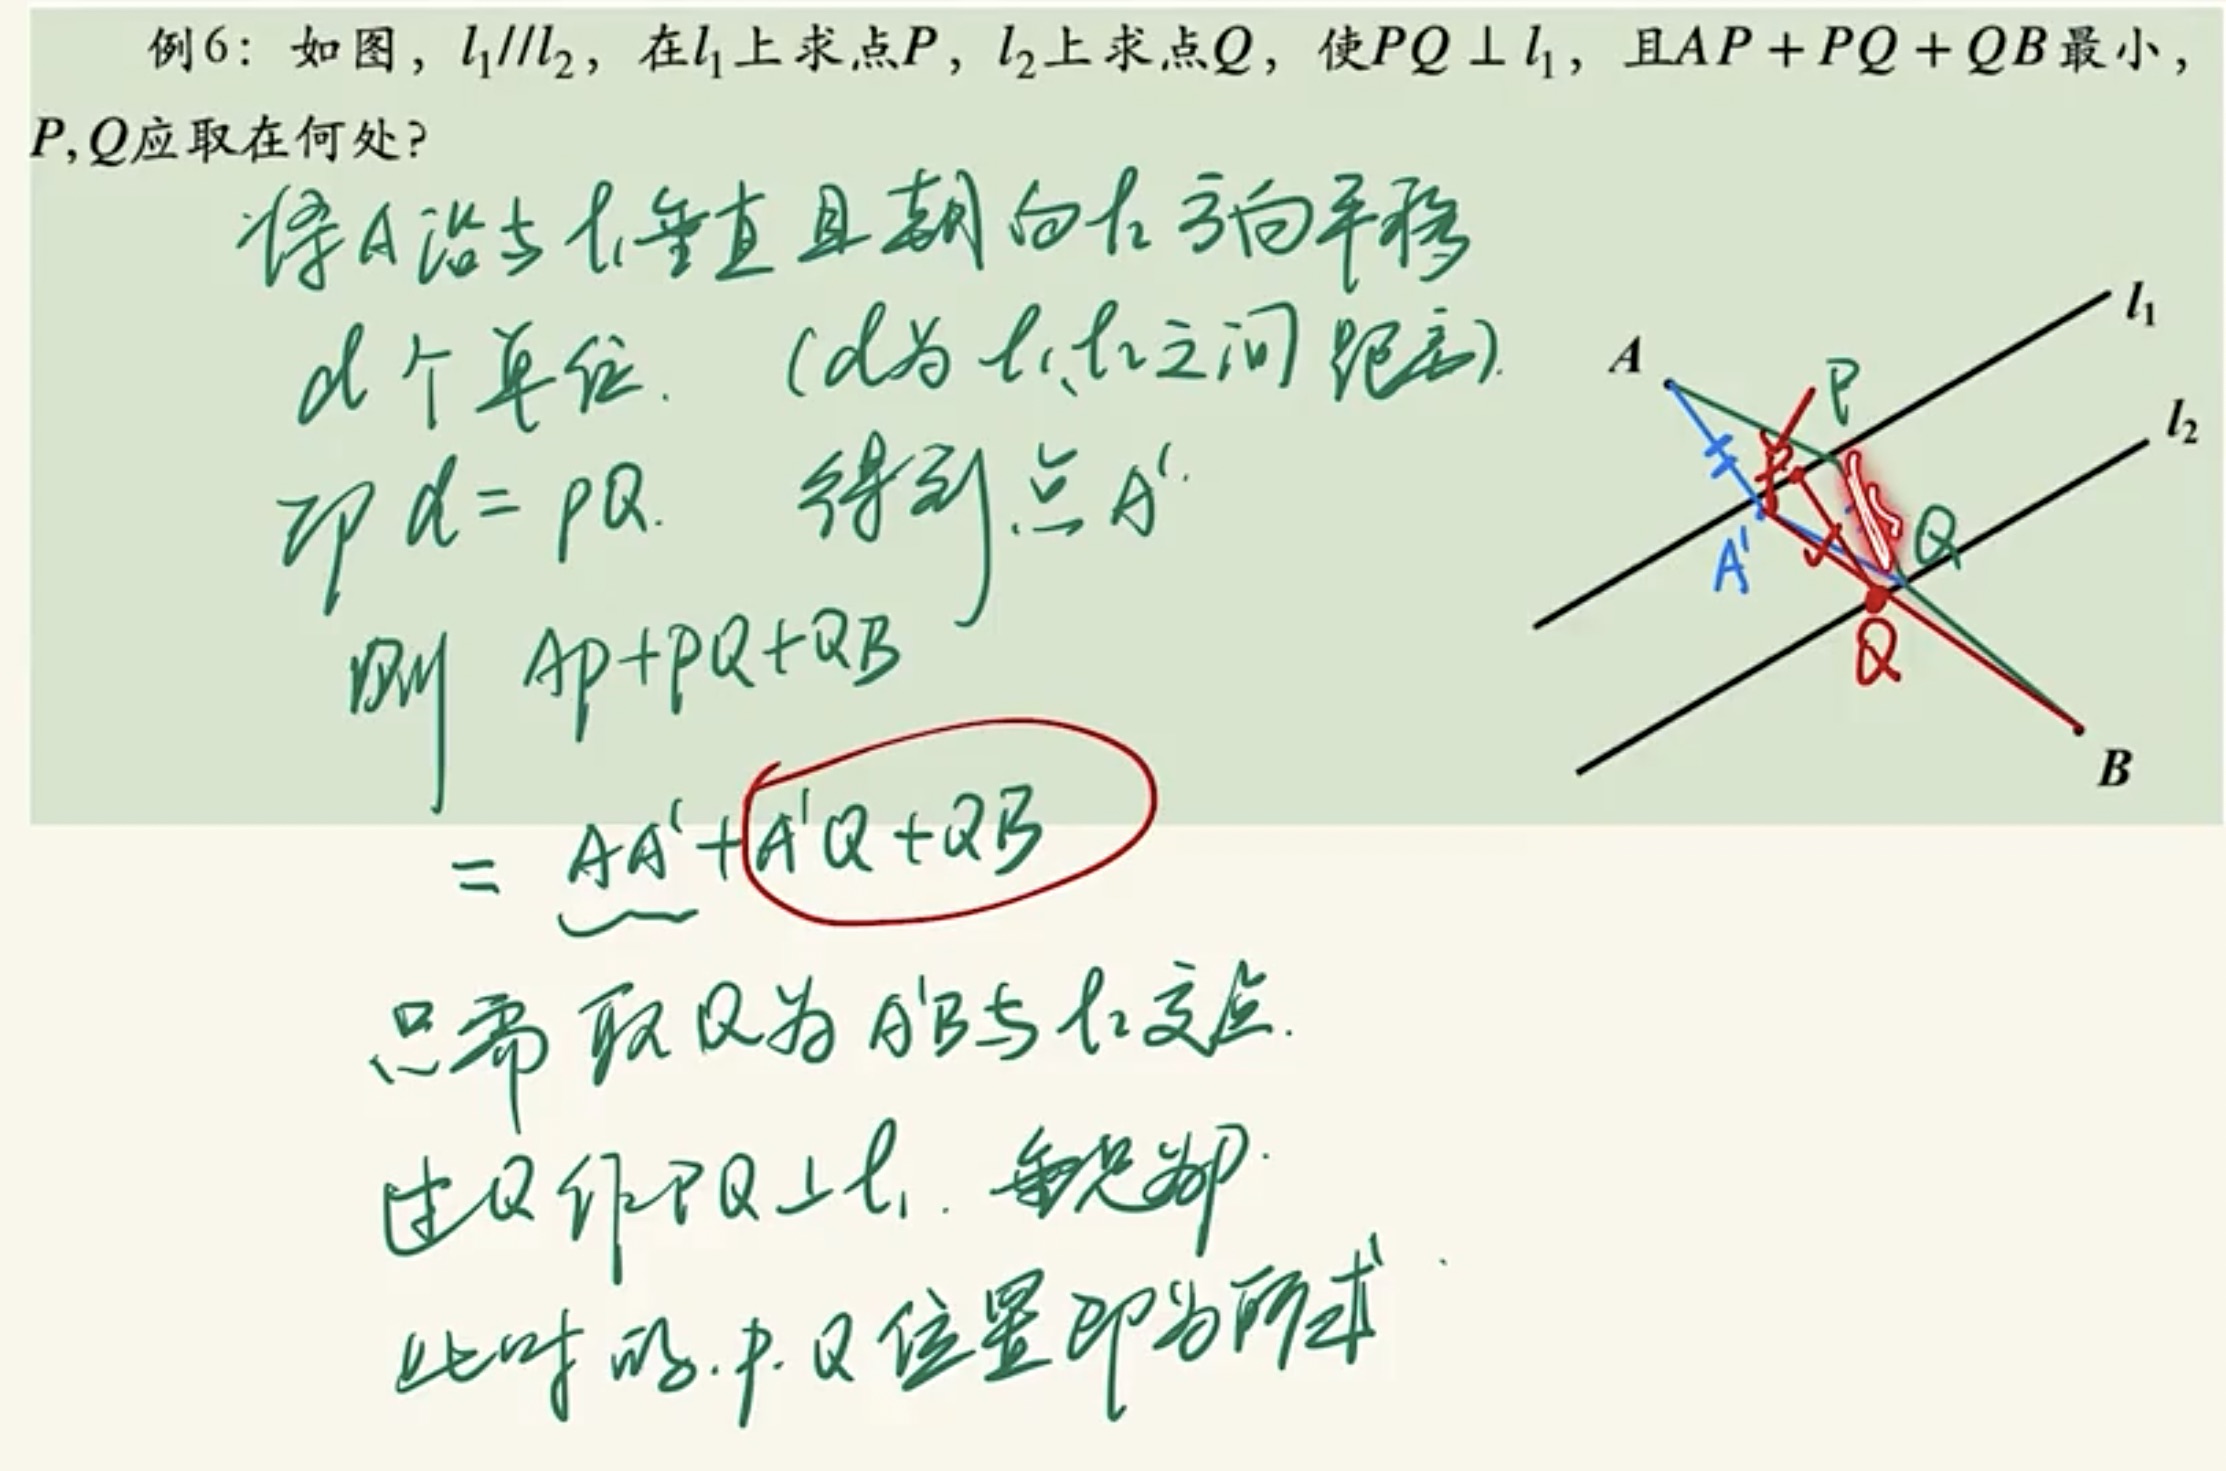 例6：如图，l₁//l₂，在l₁上求点P，l₂上求点Q，使PQ⊥l₁，且AP+PQ+QB最小，
P,Q应取在何处？
将A沿与l₁垂直且朝向l₂方向平移
d个单位．（d为l₁、l₂之间距离）．
即d=PQ．得到点A'．
则 AP+PQ+QB
= AA'+A'Q+QB
只需取Q为A'B与l₂交点．
过Q作PQ⊥l₁．垂足为P．
此时的．P．Q位置即为所求
l₁
A
P
l₂
P
A'
Q
Q
B